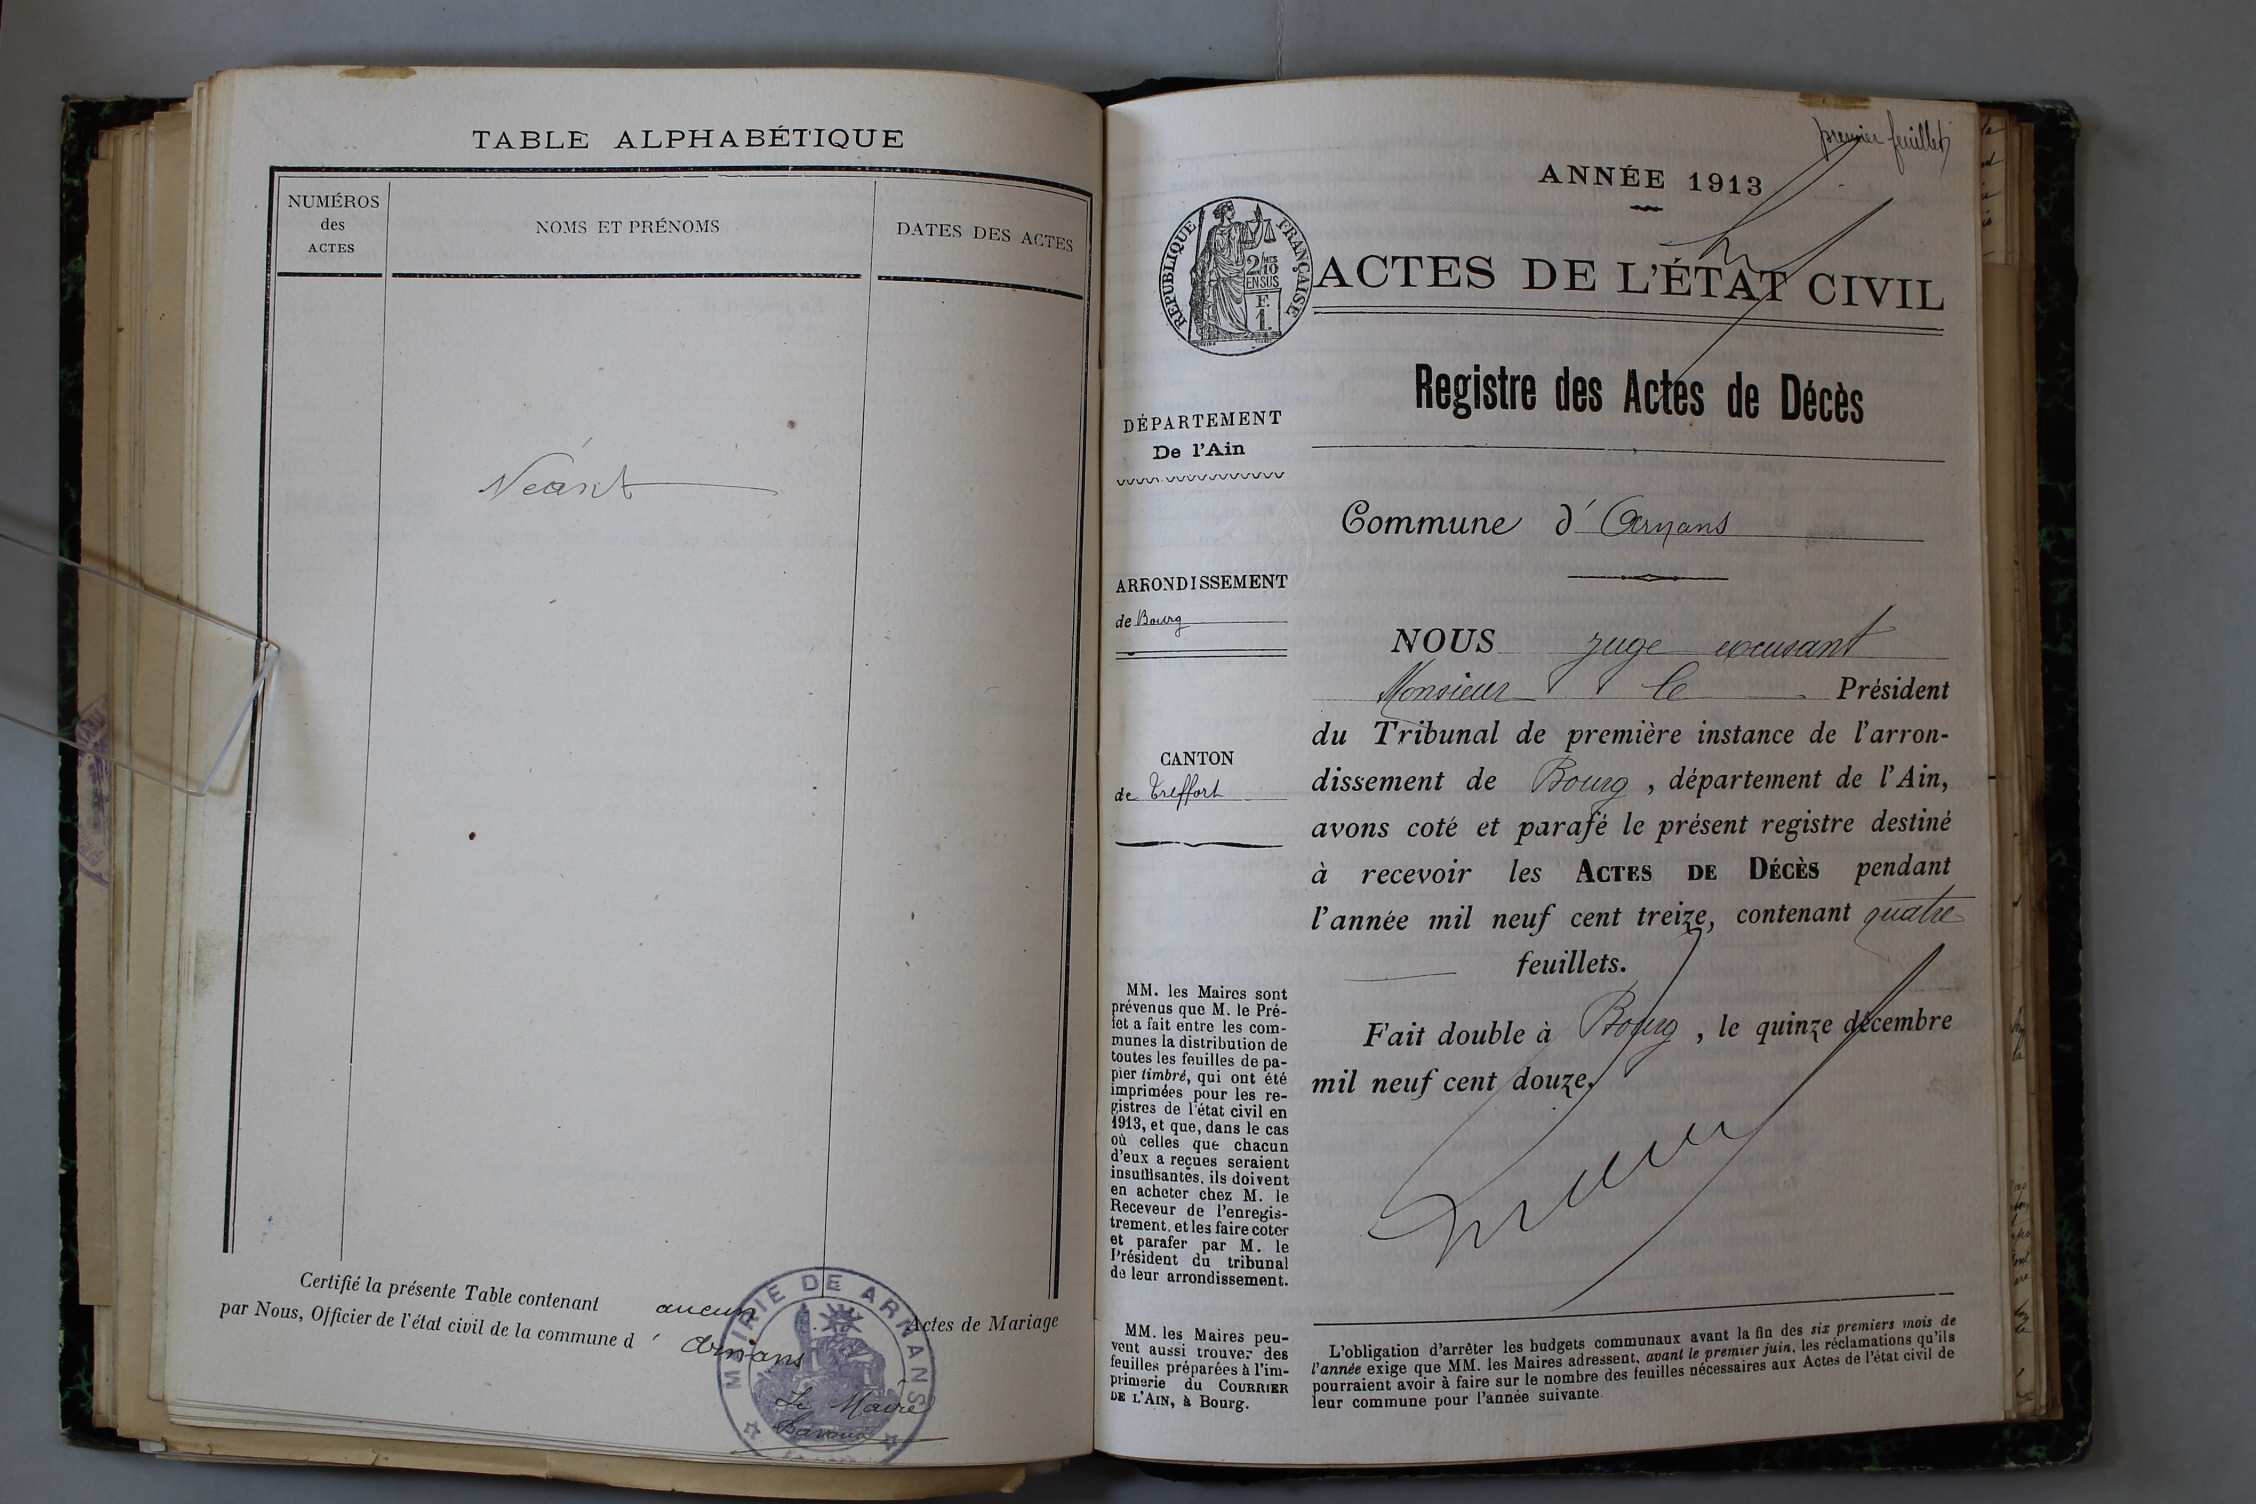 TABLE ALPHABÉTIQUE
NUMÉROS
des
ACTES
NOMS ET PRÉNOMS
DATES DES ACTES
Néant
Certifié la présente Table contenant aucun Actes de Mariage
par Nous, Officier de l'état civil de la commune d' Arnans
MAIRIE DE ARNANS
Le Maire
premier feuillet
ANNÉE 1913
RÉPUBLIQUE FRANÇAISE
2/10
EN SUS
F.
1.
ACTES DE L'ÉTAT CIVIL
Registre des Actes de Décès
DÉPARTEMENT
De l'Ain
Commune d' Arnans
ARRONDISSEMENT
de Bourg
CANTON
de Treffort
NOUS juge excusant
Monsieur le Président
du Tribunal de première instance de l'arron-
dissement de Bourg, département de l'Ain,
avons coté et parafé le présent registre destiné
à recevoir les ACTES DE DÉCÈS pendant
l'année mil neuf cent treize, contenant quatre
feuillets.
Fait double à Bourg, le quinze décembre
mil neuf cent douze.
MM. les Maires sont
prévenus que M. le Pré-
fet a fait entre les com-
munes la distribution de
toutes les feuilles de pa-
pier timbré, qui ont été
imprimées pour les re-
gistres de l'état civil en
1913, et que, dans le cas
où celles que chacun
d'eux a reçues seraient
insuffisantes, ils doivent
en acheter chez M. le
Receveur de l'enregis-
trement, et les faire coter
et parafer par M. le
Président du tribunal
de leur arrondissement.
MM. les Maires peu-
vent aussi trouver des
feuilles préparées à l'im-
primerie du COURRIER
DE L'AIN, à Bourg.
L'obligation d'arrêter les budgets communaux avant la fin des six premiers mois de
l'année exige que MM. les Maires adressent, avant le premier juin, les réclamations qu'ils
pourraient avoir à faire sur le nombre des feuilles nécessaires aux Actes de l'état civil de
leur commune pour l'année suivante.